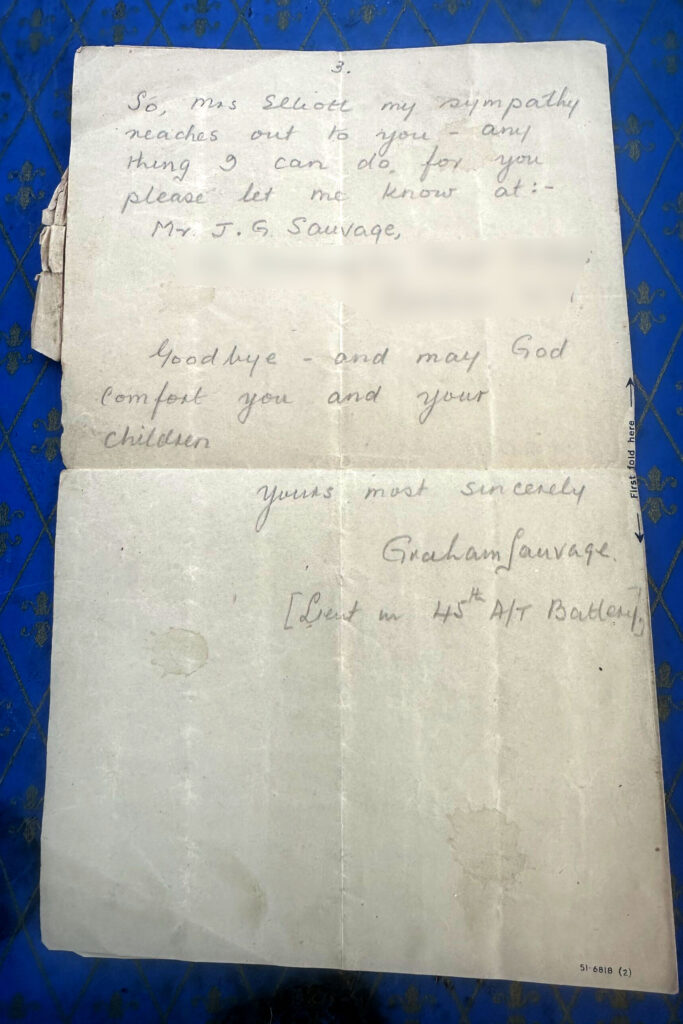 3.
So, Mrs Elliott my sympathy
reaches out to you - any
thing I can do, for you
please let me know at:-
Mr. J. G. Sauvage,
Goodbye - and may God
comfort you and your
children
yours most sincerely
Graham Sauvage.
[Lieut in 45th A/T Battery.]
First fold here
51-6818 (2)